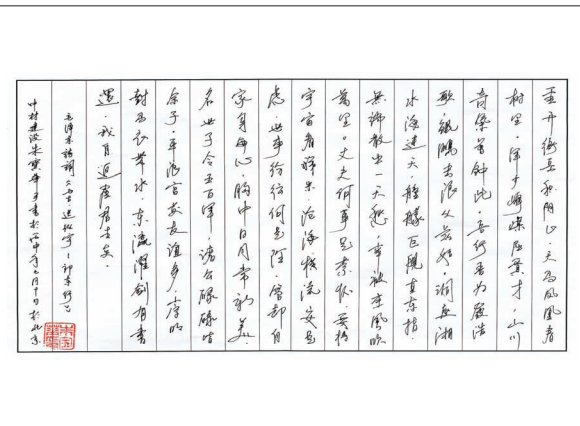 云开衡岳积阴止.天马凤凰春
树里.年少峥嵘屈贾才.山川
奇气曾钟此.君行吾为发浩
歌.鲲鹏击浪从兹始.洞庭湘
水涨连天.艟艨巨舰直东指.
无端散出一天愁.幸被东风吹
万里。丈夫何事足萦怀.要将
宇宙看稊米.沧海横流安足
虑.世事纷纭何足理.管却自
家身与心.胸中日月常新美.
名世于今五百年.诸公碌碌皆
余子.平浪宫前友谊多.崇明
对马衣带水.东瀛濯剑有书
还.我自返崖君去矣.
毛泽东诗词七古送纵宇一郎东行
中材建设朱宝 书于丙申年七月十日于北京